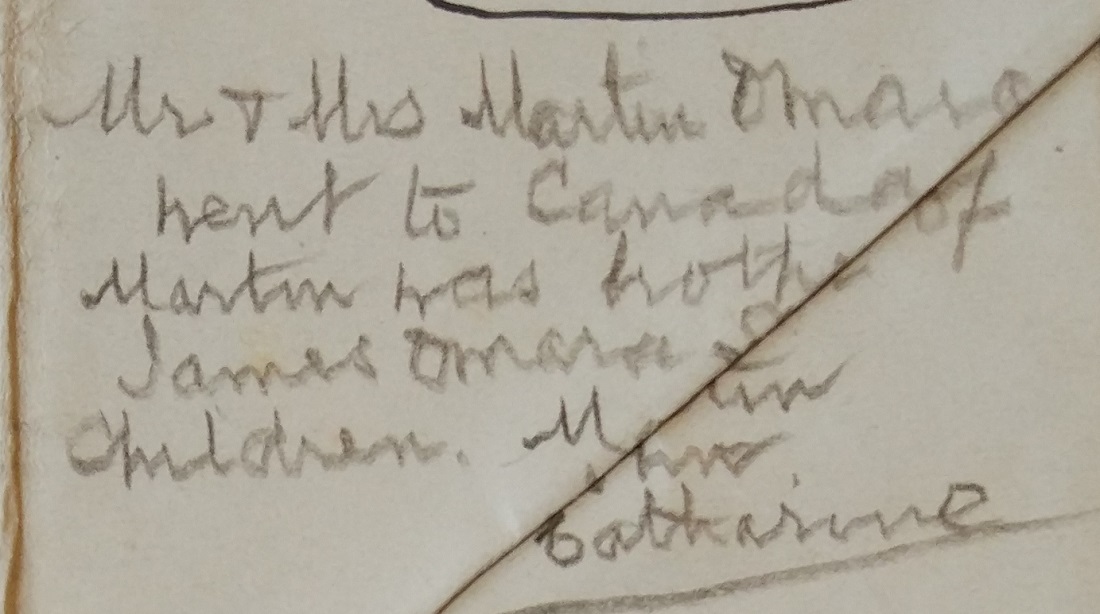 Mr & Mrs Martin Omara
went to Canada of
Martin was brother
James Omara
Children. Martin
Catharine